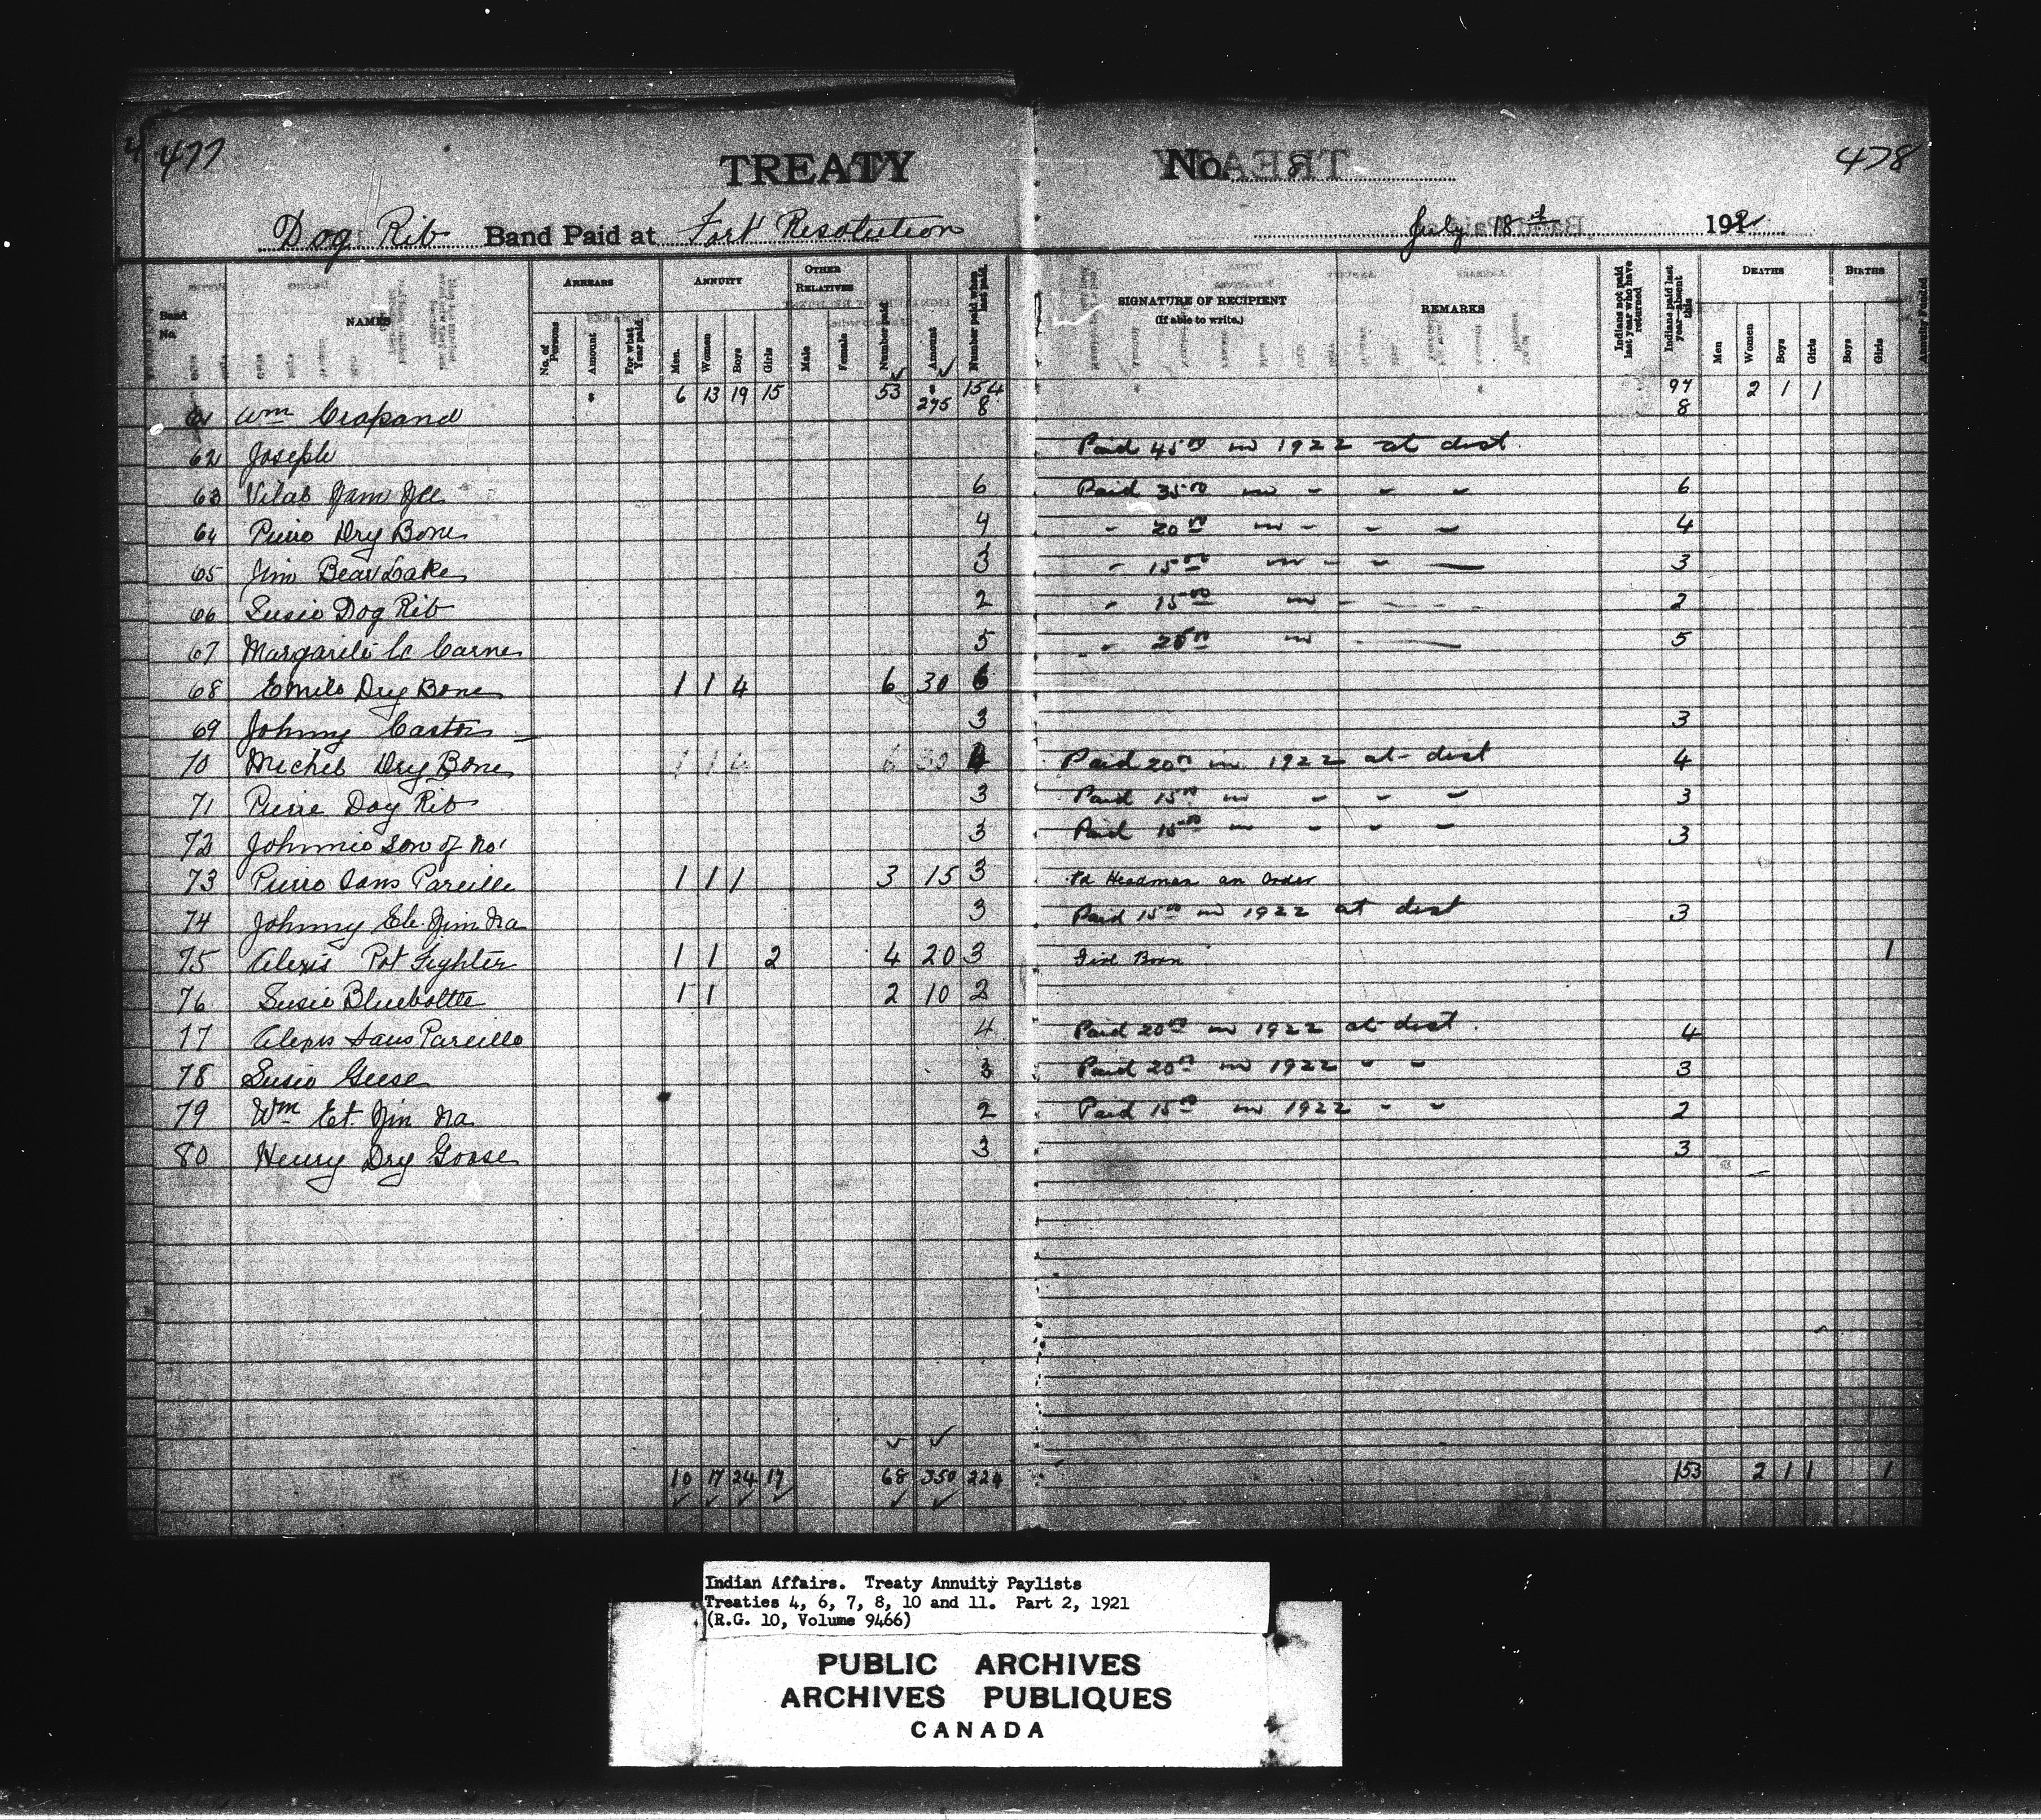 477
TREATY
No. 8
478
Dog Rib Band Paid at Fort Resolution
July 18th 192
Band No.
NAMES
ARREARS
ANNUITY
OTHER RELATIVES
No. of Persons
Amount
For what Year paid
Men.
Women
Boys
Girls
Male
Female
Number paid
Amount
Number paid when last paid.
SIGNATURE OF RECIPIENT
(If able to write.)
REMARKS
Indians not paid last year who have returned
Indians paid last year absent this
DEATHS
Men
Women
Boys
Girls
BIRTHS
Boys
Girls
Annuity Funded
6 13 19 15 53 275 154 97 2 1 1
61 Wm Crapand 8 8
62 Joseph Paid 45 00 in 1922 at dist.
63 Vital 6 Paid 35 00 in - - - 6
64 Pierre Dry Bone 4 - 20 00 in - - - 4
65 Jim Bear Lake 3 - 15 00 in - - — 3
66 Susie Dog Rib 2 - 15 00 in - - - - 2
67 Margarite Le Carne 5 - 25 00 in - — 5
68 Emile Dry Bone 1 1 4 6 30 6
69 Johnny Castor 3 3
70 Michel Dry Bone 1 1 4 6 30 4 Paid 20 00 in 1922 at dist 4
71 Pierre Dog Rib 3 Paid 15 00 in - - - 3
72 Johnnie Son of No 1 3 Paid 15 00 in - - - 3
73 Pierre Sans Pareille 1 1 1 3 15 3 Pd Headman on Order
74 Johnny Et. Jim Na 3 Paid 15 00 in 1922 at dist 3
75 Alexis Pot Fighter 1 1 2 4 20 3 Girl Born 1
76 Susie Bluebottle 1 1 2 10 2
77 Alexis Sans Pareille 4 Paid 20 00 in 1922 at dist. 4
78 Susie Geese 3 Paid 20 00 in 1922 - - 3
79 Wm Et. Jim Na 2 Paid 15 00 in 1922 - - 2
80 Henry Dry Goose 3 3
10 17 24 17 68 350 224 153 2 1 1 1
Indian Affairs. Treaty Annuity Paylists
Treaties 4, 6, 7, 8, 10 and 11. Part 2, 1921
(R.G. 10, Volume 9466)
PUBLIC ARCHIVES
ARCHIVES PUBLIQUES
CANADA